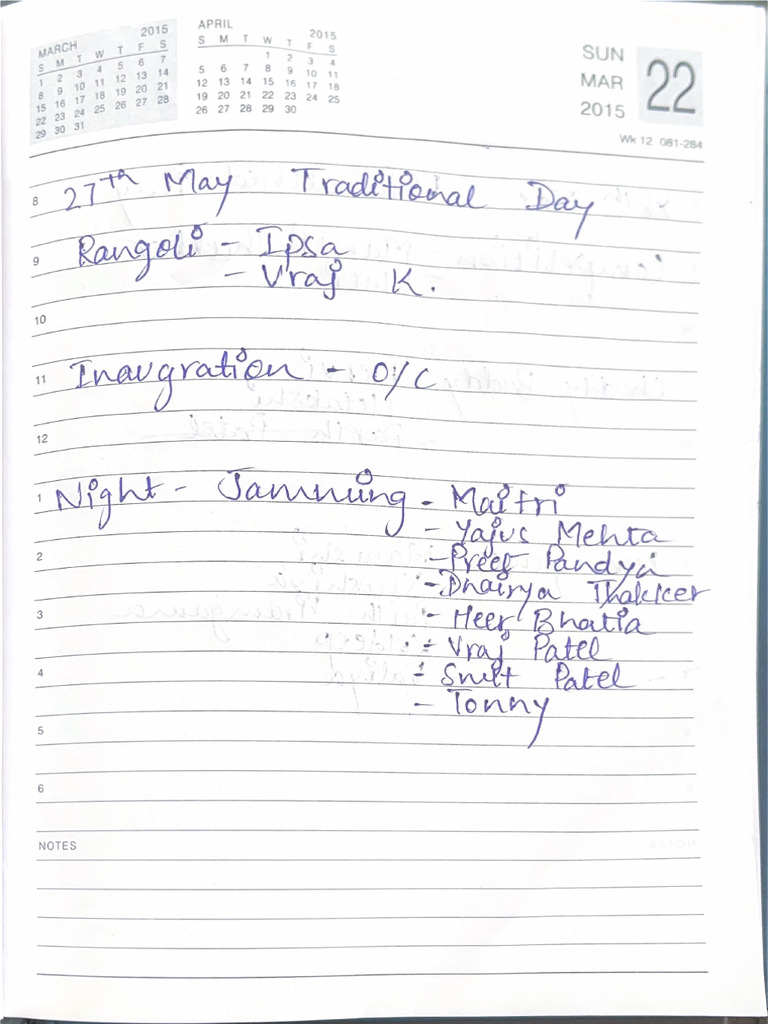 MARCH 2015
S M T W T F S
1 2 3 4 5 6 7
8 9 10 11 12 13 14
15 16 17 18 19 20 21
22 23 24 25 26 27 28
29 30 31
APRIL 2015
S M T W T F S
1 2 3 4
5 6 7 8 9 10 11
12 13 14 15 16 17 18
19 20 21 22 23 24 25
26 27 28 29 30
SUN
MAR
2015
22
Wk 12 081-284
8 27th May Traditional Day
9 Rangoli - Ipsa
- Vraj K.
10
11 Inaugration - O/C
12
1 Night - Jamming - Maitri
- Yajus Mehta
2 - Preet Pandya
- Dhairya Thakker
3 - Heer Bhatia
- Vraj Patel
4 - Smit Patel
- Tonny
5
6
NOTES